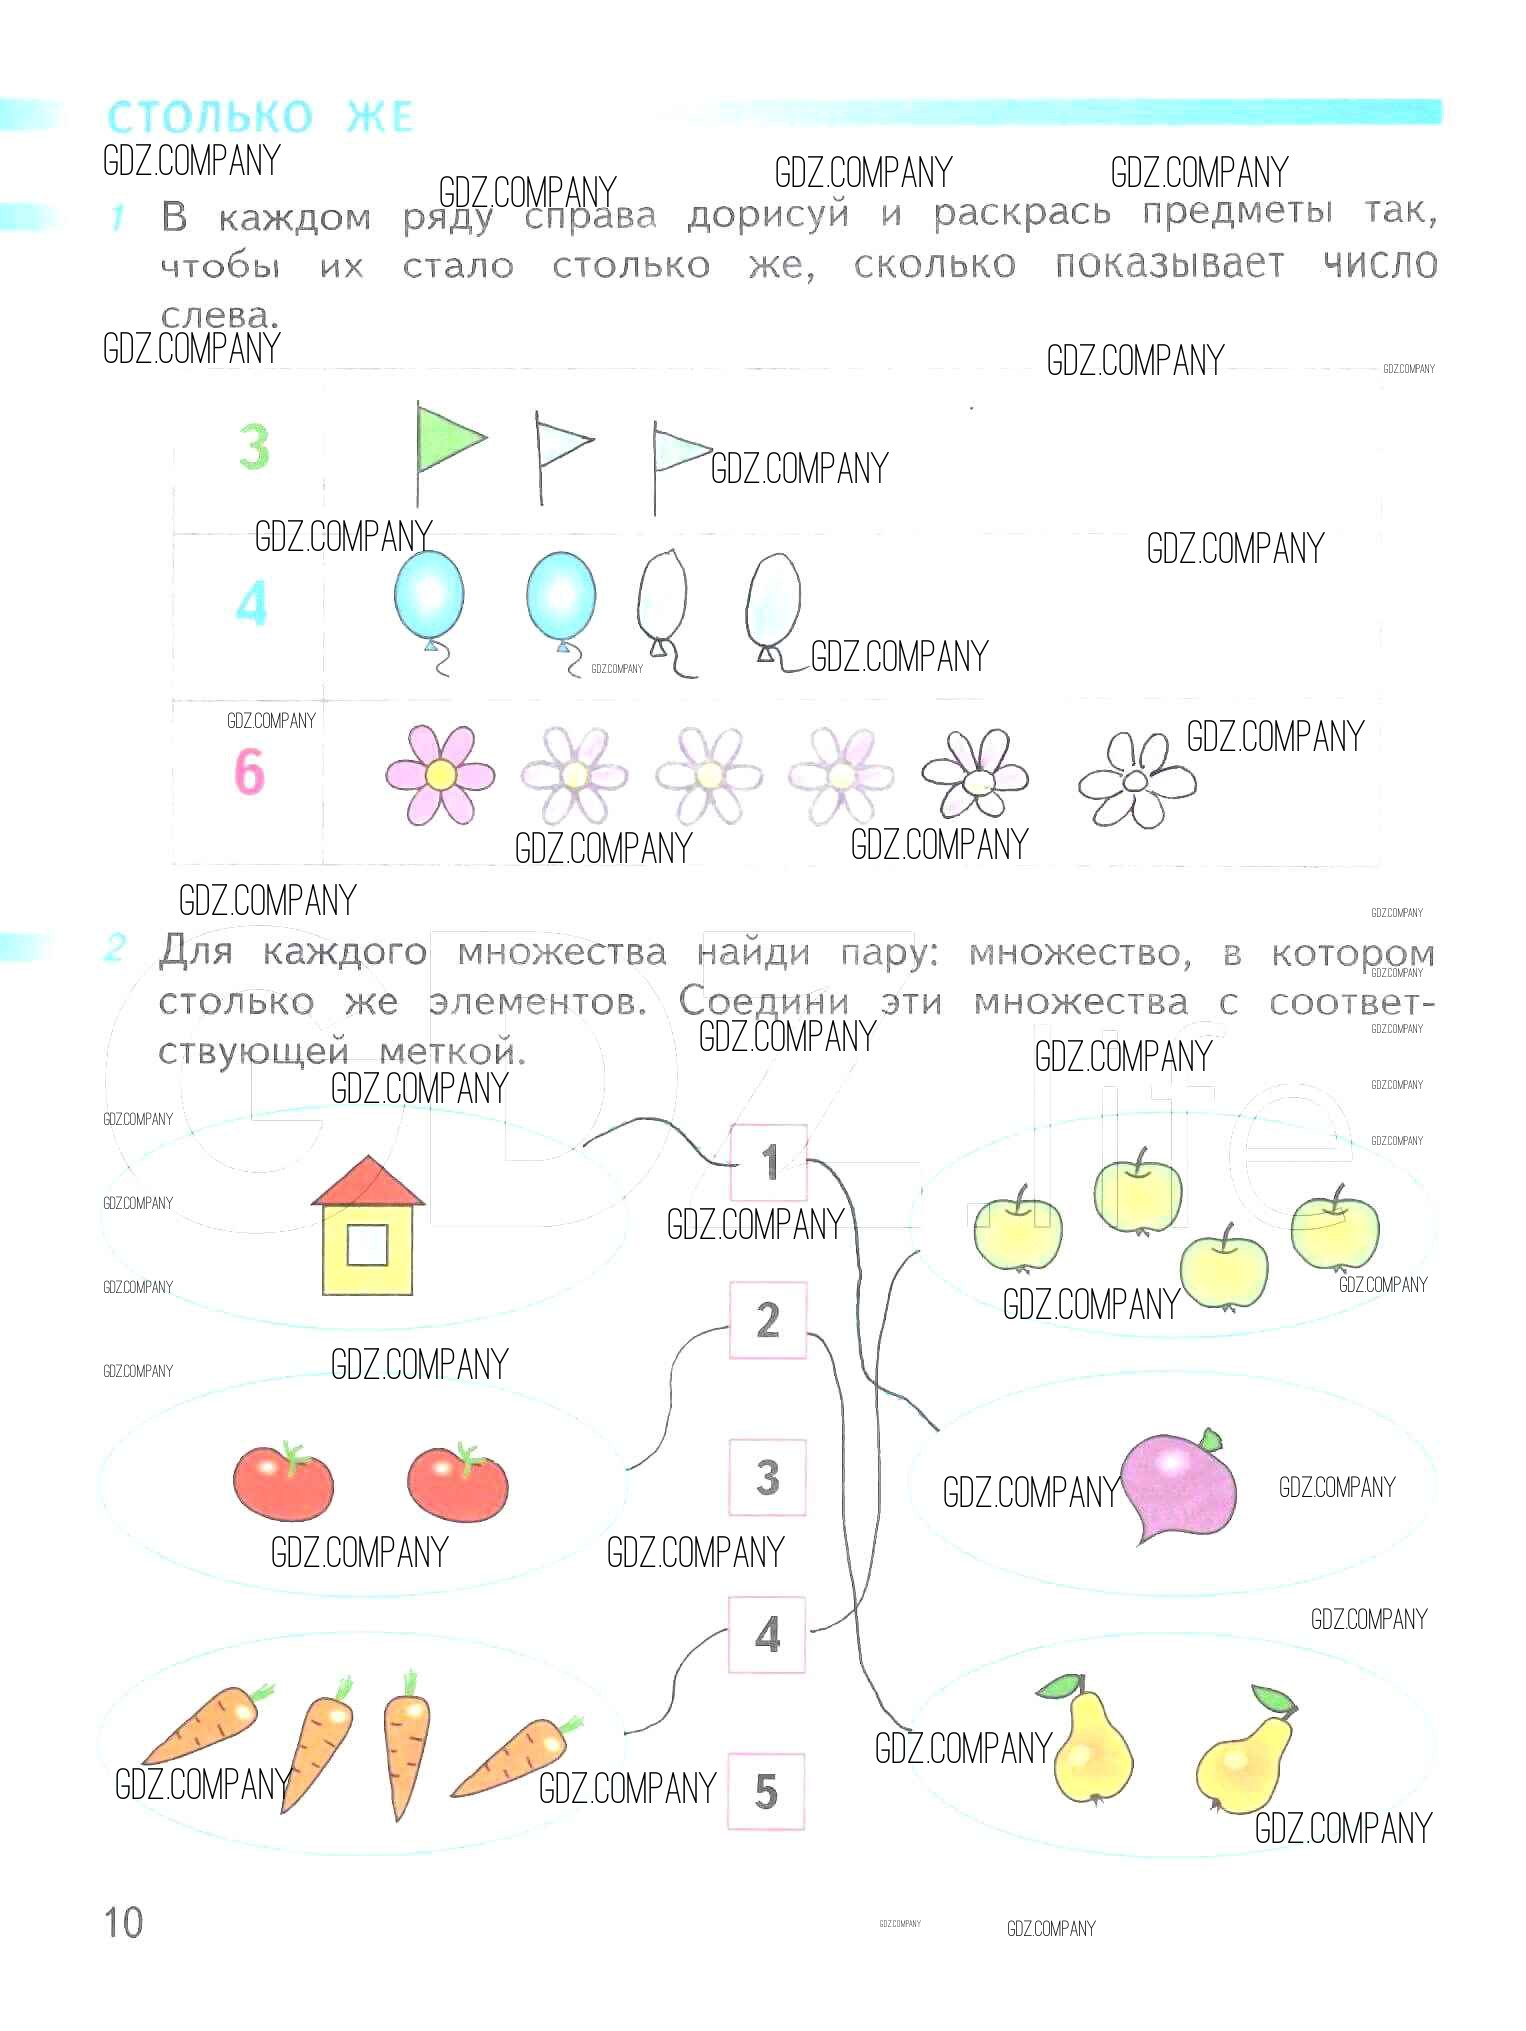 СТОЛЬКО ЖЕ
GDZ.COMPANY GDZ.COMPANY GDZ.COMPANY GDZ.COMPANY
1 В каждом ряду справа дорисуй и раскрась предметы так,
чтобы их стало столько же, сколько показывает число
слева.
GDZ.COMPANY GDZ.COMPANY GDZ.COMPANY
3
GDZ.COMPANY
GDZ.COMPANY GDZ.COMPANY
4
GDZ.COMPANY GDZ.COMPANY
GDZ.COMPANY GDZ.COMPANY
6
GDZ.COMPANY GDZ.COMPANY
GDZ.COMPANY GDZ.COMPANY
2 Для каждого множества найди пару: множество, в котором
GDZ.COMPANY
столько же элементов. Соедини эти множества с соответ-
GDZ.COMPANY GDZ.COMPANY GDZ.COMPANY
ствующей меткой.
GDZ.COMPANY GDZ.COMPANY
GDZ.life
GDZ.COMPANY GDZ.COMPANY
1
GDZ.COMPANY GDZ.COMPANY
GDZ.COMPANY GDZ.COMPANY GDZ.COMPANY
2
GDZ.COMPANY GDZ.COMPANY
3
GDZ.COMPANY GDZ.COMPANY
GDZ.COMPANY GDZ.COMPANY
GDZ.COMPANY
4
GDZ.COMPANY
GDZ.COMPANY GDZ.COMPANY
5
GDZ.COMPANY
10
GDZ.COMPANY GDZ.COMPANY